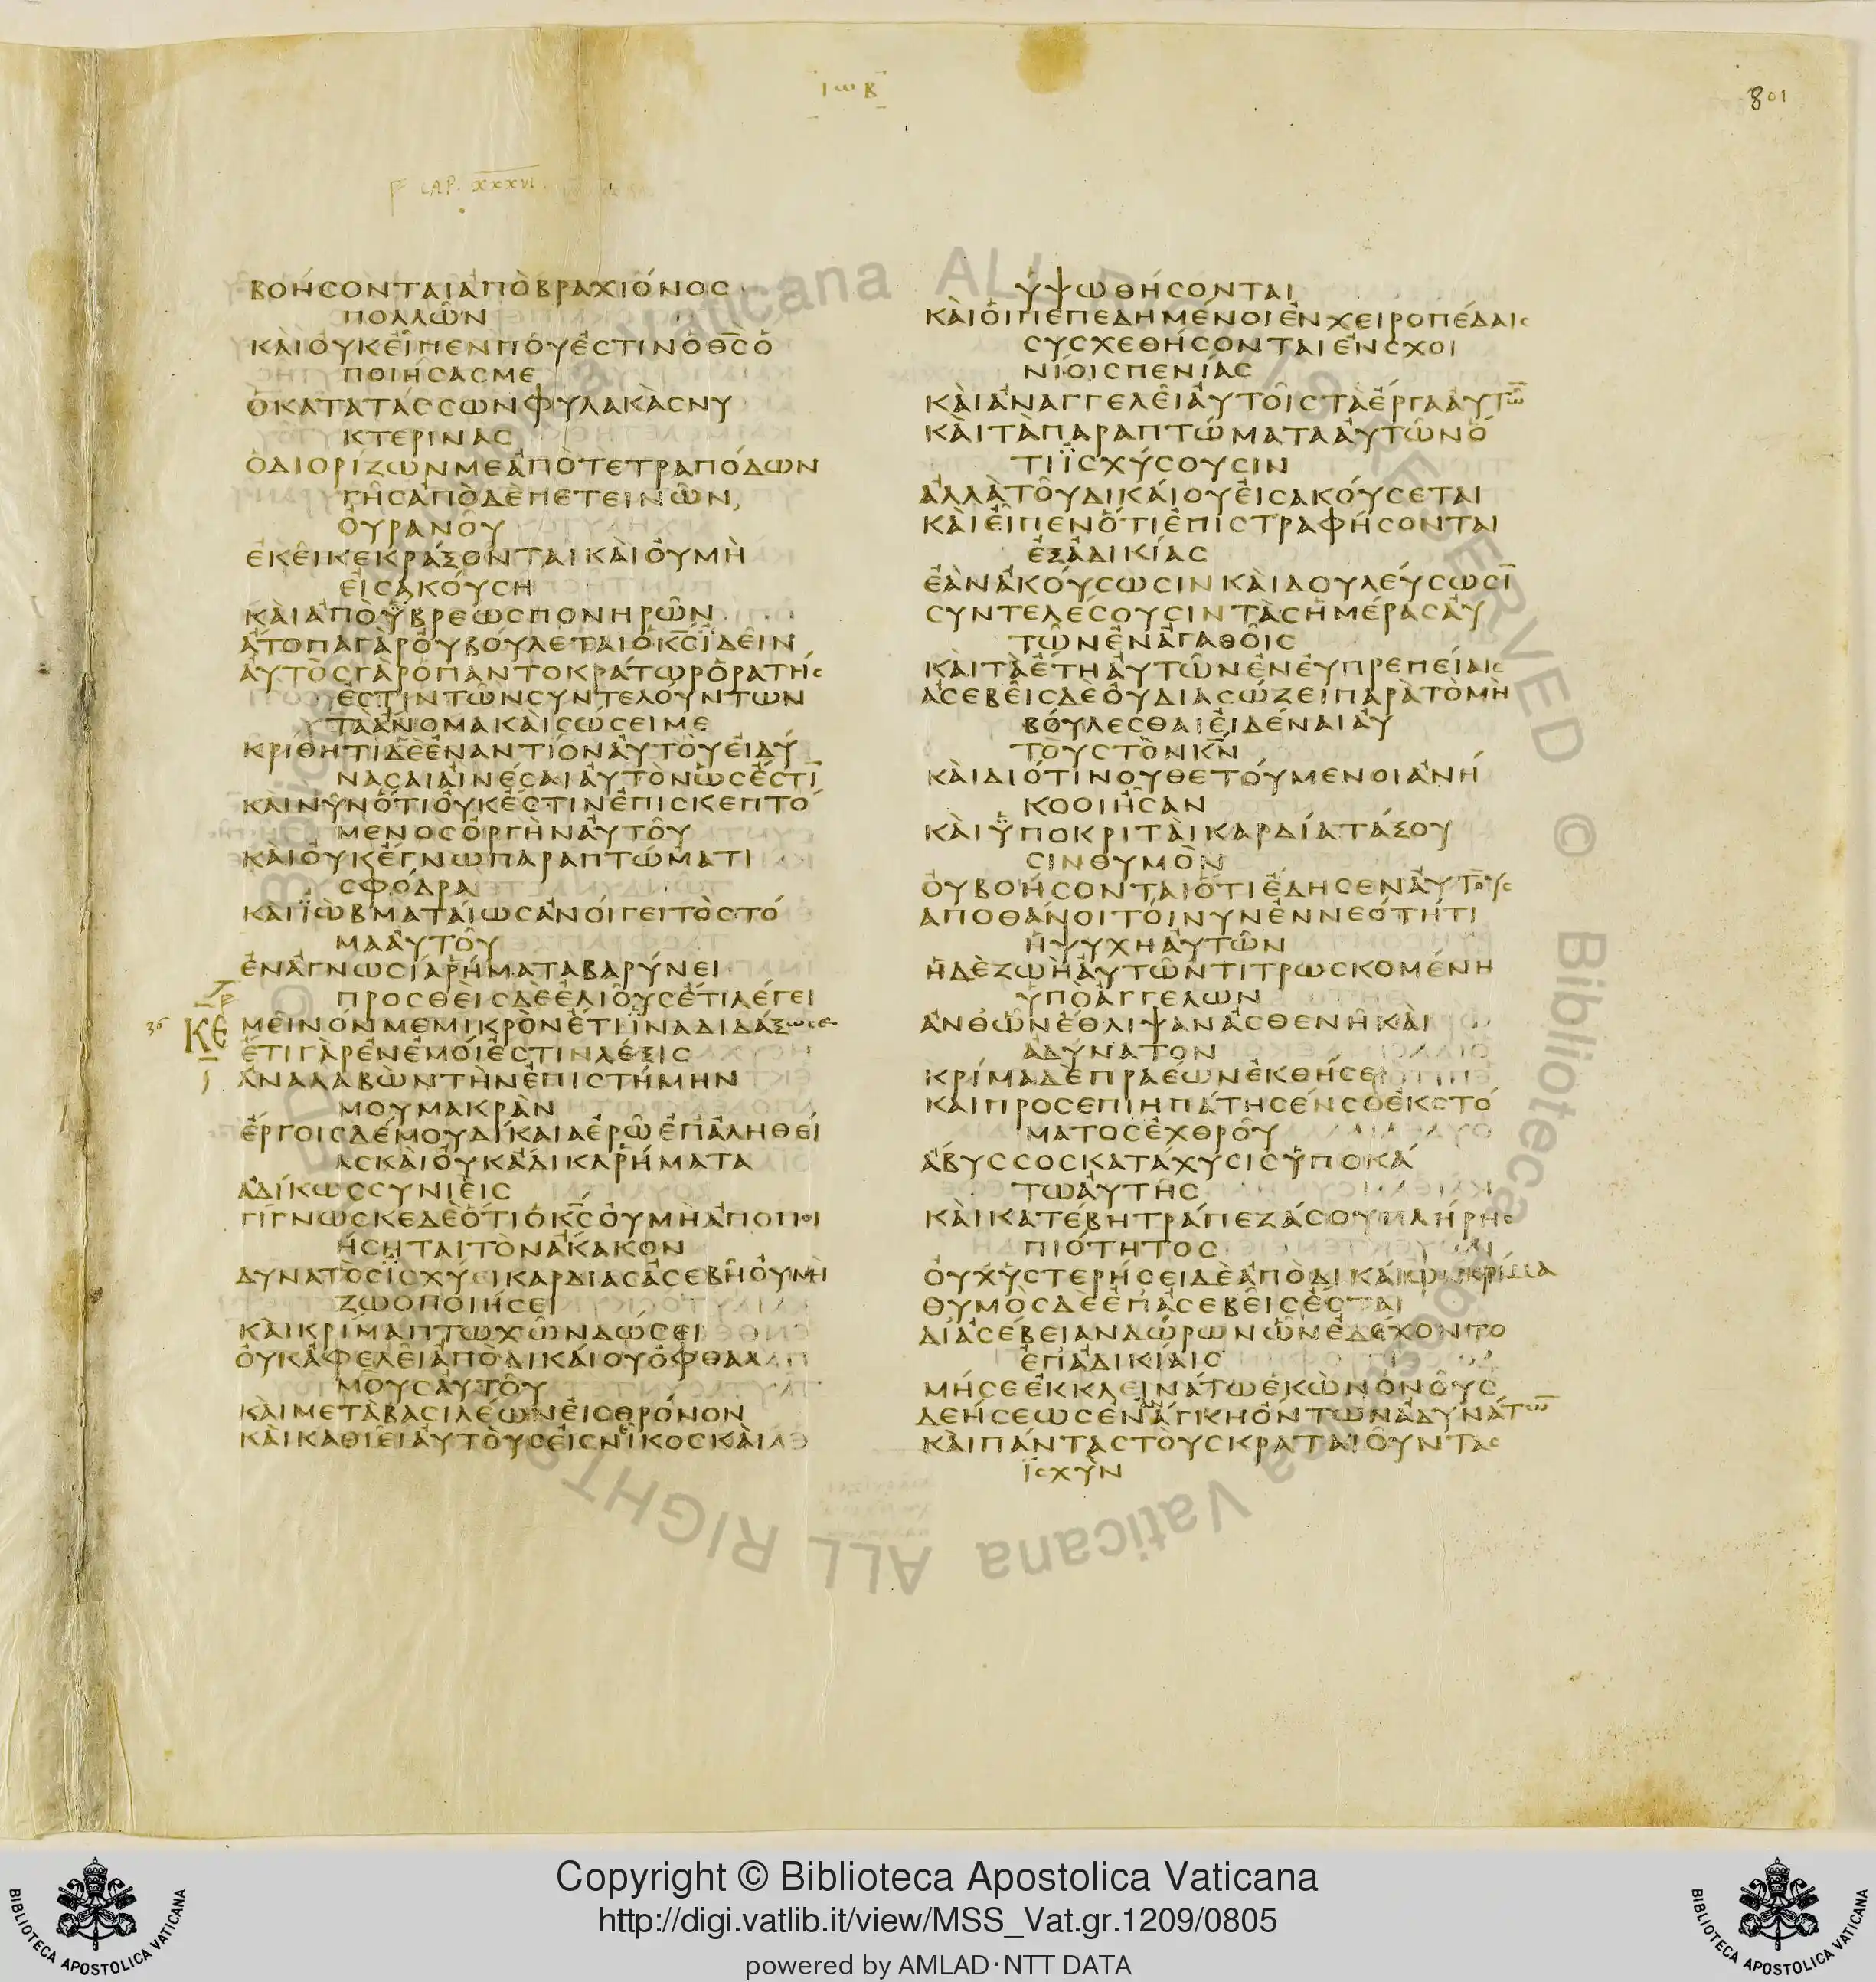 ΙωΒ
801
CAP. XXXVI.
ΒΟΗϹΟΝΤΑΙΑΠΟΒΡΑΧΙΟΝΟϹ
ΠΟΛΛΩΝ
ΚΑΙΟΥΚΕΙΠΕΝΠΟΥΕϹΤΙΝΟΘ̅Ϲ̅Ο
ΠΟΙΗϹΑϹΜΕ
ΟΚΑΤΑΤΑϹϹΩΝΦΥΛΑΚΑϹΝΥ
ΚΤΕΡΙΝΑϹ
ΟΔΙΟΡΙΖΩΝΜΕΑΠΟΤΕΤΡΑΠΟΔΩΝ
ΓΗϹΑΠΟΔΕΠΕΤΕΙΝΩΝ
ΟΥΡΑΝΟΥ
ΕΚΕΙΚΕΚΡΑΞΟΝΤΑΙΚΑΙΟΥΜΗ
ΕΙϹΑΚΟΥϹΗ
ΚΑΙΑΠΟΥΒΡΕΩϹΠΟΝΗΡΩΝ
ΑΤΟΠΑΓΑΡΟΥΒΟΥΛΕΤΑΙΟΚ̅Ϲ̅ΪΔΕΙΝ
ΑΥΤΟϹΓΑΡΟΠΑΝΤΟΚΡΑΤΩΡΟΡΑΤΗϹ
ΕϹΤΙΝΤΩΝϹΥΝΤΕΛΟΥΝΤΩΝ
ΤΑΑΝΟΜΑΚΑΙϹΩϹΕΙΜΕ
ΚΡΙΘΗΤΙΔΕΕΝΑΝΤΙΟΝΑΥΤΟΥΕΙΔΥ
ΝΑϹΑΙΑΙΝΕϹΑΙΑΥΤΟΝΩϹΕϹΤΙ̅
ΚΑΙΝΥΝΟΤΙΟΥΚΕϹΤΙΝΕΠΙϹΚΕΠΤΟ
ΜΕΝΟϹΟΡΓΗΝΑΥΤΟΥ
ΚΑΙΟΥΚΕΓΝΩΠΑΡΑΠΤΩΜΑΤΙ
ϹΦΟΔΡΑ
ΚΑΙΪΩΒΜΑΤΑΙΩϹΑΝΟΙΓΕΙΤΟϹΤΟ
ΜΑΑΥΤΟΥ
ΕΝΑΓΝΩϹΙΑΡΗΜΑΤΑΒΑΡΥΝΕΙ
ΠΡΟϹΘΕΙϹΔΕΕΛΙΟΥϹΕΤΙΛΕΓΕΙ
36 ΚΕ ΜΕΙΝΟΝΜΕΜΙΚΡΟΝΕΤΙΪΝΑΔΙΔΑΞΩϹΕ
ΕΤΙΓΑΡΕΝΕΜΟΙΕϹΤΙΝΛΕΞΙϹ
ΑΝΑΛΑΒΩΝΤΗΝΕΠΙϹΤΗΜΗΝ
ΜΟΥΜΑΚΡΑΝ
ΕΡΓΟΙϹΔΕΜΟΥΔΙΚΑΙΑΕΡΩΕΠΑΛΗΘΕΙ
ΑϹΚΑΙΟΥΚΑΔΙΚΑΡΗΜΑΤΑ
ΑΔΙΚΩϹϹΥΝΙΕΙϹ
ΓΙΓΝΩϹΚΕΔΕΟΤΙΟΚ̅Ϲ̅ΟΥΜΗΑΠΟΠΟΙ
ΗϹΗΤΑΙΤΟΝΑΚΑΚΟΝ
ΔΥΝΑΤΟϹΪϹΧΥΕΙΚΑΡΔΙΑϹΑϹΕΒΗΟΥΜΗ
ΖΩΟΠΟΙΗϹΕΙ
ΚΑΙΚΡΙΜΑΠΤΩΧΩΝΔΩϹΕΙ
ΟΥΚΑΦΕΛΕΙΑΠΟΔΙΚΑΙΟΥΟΦΘΑΛ
ΜΟΥϹΑΥΤΟΥ
ΚΑΙΜΕΤΑΒΑϹΙΛΕΩΝΕΙϹΘΡΟΝΟΝ
ΚΑΙΚΑΘΙΕΙΑΥΤΟΥϹΕΙϹΝΕΙΚΟϹΚΑΙ
ΥΨΩΘΗϹΟΝΤΑΙ
ΚΑΙΟΙΠΕΠΕΔΗΜΕΝΟΙΕΝΧΕΙΡΟΠΕΔΑΙϹ
ϹΥϹΧΕΘΗϹΟΝΤΑΙΕΝϹΧΟΙ
ΝΙΟΙϹΠΕΝΙΑϹ
ΚΑΙΑΝΑΓΓΕΛΕΙΑΥΤΟΙϹΤΑΕΡΓΑΑΥΤΩ̅
ΚΑΙΤΑΠΑΡΑΠΤΩΜΑΤΑΑΥΤΩΝΟ
ΤΙΪϹΧΥϹΟΥϹΙΝ
ΑΛΛΑΤΟΥΔΙΚΑΙΟΥΕΙϹΑΚΟΥϹΕΤΑΙ
ΚΑΙΕΙΠΕΝΟΤΙΕΠΙϹΤΡΑΦΗϹΟΝΤΑΙ
ΕΞΑΔΙΚΙΑϹ
ΕΑΝΑΚΟΥϹΩϹΙΝΚΑΙΔΟΥΛΕΥϹΩϹΙ̅
ϹΥΝΤΕΛΕϹΟΥϹΙΝΤΑϹΗΜΕΡΑϹΑΥ
ΤΩΝΕΝΑΓΑΘΟΙϹ
ΚΑΙΤΑΕΤΗΑΥΤΩΝΕΝΕΥΠΡΕΠΕΙΑΙϹ
ΑϹΕΒΕΙϹΔΕΟΥΔΙΑϹΩΖΕΙΠΑΡΑΤΟΜΗ
ΒΟΥΛΕϹΘΑΙΕΙΔΕΝΑΙΑΥ
ΤΟΥϹΤΟΝΚ̅Ν̅
ΚΑΙΔΙΟΤΙΝΟΥΘΕΤΟΥΜΕΝΟΙΑΝΗ
ΚΟΟΙΗϹΑΝ
ΚΑΙΫΠΟΚΡΙΤΑΙΚΑΡΔΙΑΤΑΞΟΥ
ϹΙΝΘΥΜΟΝ
ΟΥΒΟΗϹΟΝΤΑΙΟΤΙΕΔΗϹΕΝΑΥΤΟΥϹ
ΑΠΟΘΑΝΟΙΤΟΙΝΥΝΕΝΝΕΟΤΗΤΙ
ΗΨΥΧΗΑΥΤΩΝ
ΗΔΕΖΩΗΑΥΤΩΝΤΙΤΡΩϹΚΟΜΕΝΗ
ΥΠΟΑΓΓΕΛΩΝ
ΑΝΘΩΝΕΘΛΙΨΑΝΑϹΘΕΝΗΚΑΙ
ΑΔΥΝΑΤΟΝ
ΚΡΙΜΑΔΕΠΡΑΕΩΝΕΚΘΗϹΕΙ
ΚΑΙΠΡΟϹΕΠΙΗΠΑΤΗϹΕΝϹΕΕΚϹΤΟ
ΜΑΤΟϹΕΧΘΡΟΥ
ΑΒΥϹϹΟϹΚΑΤΑΧΥϹΙϹΥΠΟΚΑ
ΤΩΑΥΤΗϹ
ΚΑΙΚΑΤΕΒΗΤΡΑΠΕΖΑϹΟΥΠΛΗΡΗϹ
ΠΙΟΤΗΤΟϹ
ΟΥΧΥϹΤΕΡΗϹΕΙΔΕΑΠΟΔΙΚΑΙΩΝΚΡΙΜΑ
ΘΥΜΟϹΔΕΕΠΑϹΕΒΕΙϹΕϹΤΑΙ
ΔΙΑϹΕΒΕΙΑΝΔΩΡΩΝΩΝΕΔΕΧΟΝΤΟ
ΕΠΑΔΙΚΙΑΙϹ
ΜΗϹΕΕΚΚΛΕΙΝΑΤΩΕΚΩΝΟΝΟΥϹ
ΔΕΗϹΕΩϹΕΝΑΝΑΓΚΗΟΝΤΩΝΑΔΥΝΑΤΩ̅
ΚΑΙΠΑΝΤΑϹΤΟΥϹΚΡΑΤΑΙΟΥΝΤΑϹ
ΪϹΧΥΝ
© Biblioteca Apostolica Vaticana ALL RIGHTS RESERVED © Biblioteca Apostolica Vaticana ALL RIGHTS
Copyright © Biblioteca Apostolica Vaticana
http://digi.vatlib.it/view/MSS_Vat.gr.1209/0805
powered by AMLAD·NTT DATA
BIBLIOTECA APOSTOLICA VATICANA
BIBLIOTECA APOSTOLICA VATICANA